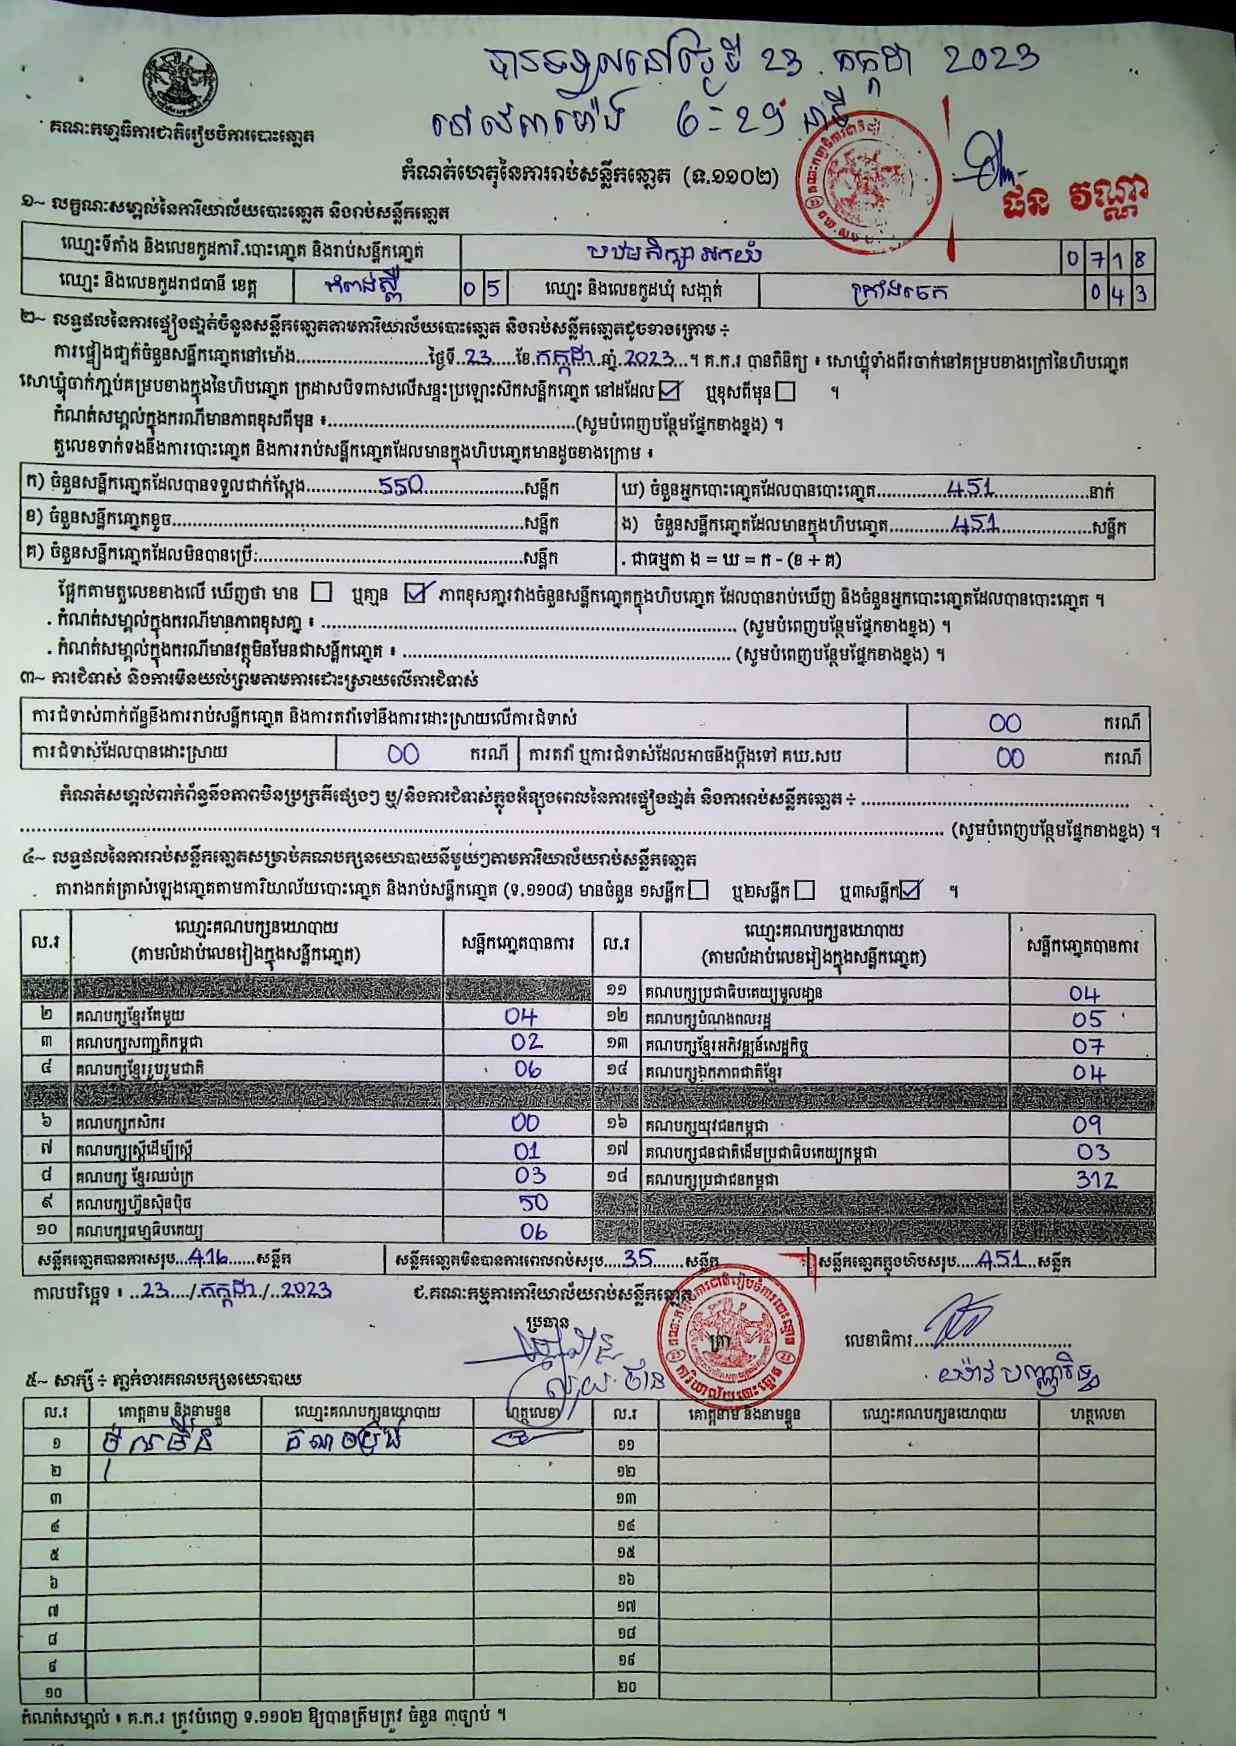 បានទទួលនៅថ្ងៃទី 23 កក្កដា 2023
នៅវេលាម៉ោង 6:29 នាទី
គណៈកម្មាធិការជាតិរៀបចំការបោះឆ្នោត
កំណត់ហេតុនៃការរាប់សន្លឹកឆ្នោត (ទ.១១០២)
ផន វណ្ណា
១~ លក្ខណៈសម្គាល់នៃការិយាល័យបោះឆ្នោត និងរាប់សន្លឹកឆ្នោត
ឈ្មោះទីតាំង និងលេខកូដការិ.បោះឆ្នោត និងរាប់សន្លឹកឆ្នោត បឋមសិក្សា 0718
ឈ្មោះ និងលេខកូដរាជធានី ខេត្ត កំពង់ស្ពឺ 05 ឈ្មោះ និងលេខកូដឃុំ សង្កាត់ ក្រាំងចេក 043
២~ លទ្ធផលនៃការផ្ទៀងផ្ទាត់ចំនួនសន្លឹកឆ្នោតតាមការិយាល័យបោះឆ្នោត និងរាប់សន្លឹកឆ្នោតដូចខាងក្រោម ÷
ការផ្ទៀងផ្ទាត់ចំនួនសន្លឹកឆ្នោតនៅម៉ោង..........ថ្ងៃទី..23...ខែ.កក្កដា.ឆ្នាំ.2023...។ គ.ក.រ បានពិនិត្យ ៖ សោឃ្លុំទាំងពីរចាក់នៅគម្របខាងក្រៅនៃហិបឆ្នោត
សោឃ្លុំចាក់ភ្ជាប់គម្របខាងក្នុងនៃហិបឆ្នោត ក្រដាសបិទពាសលើសន្ទះប្រឡោះសិកសន្លឹកឆ្នោត នៅដដែល ☑ ឬខុសពីមុន ☐ ។
កំណត់សម្គាល់ក្នុងករណីមានភាពខុសពីមុន ៖..........(សូមបំពេញបន្ថែមផ្នែកខាងខ្នង) ។
តួលេខទាក់ទងនឹងការបោះឆ្នោត និងការរាប់សន្លឹកឆ្នោតដែលមានក្នុងហិបឆ្នោតមានដូចខាងក្រោម ៖
ក) ចំនួនសន្លឹកឆ្នោតដែលបានទទួលជាក់ស្តែង......550......សន្លឹក ឃ) ចំនួនអ្នកបោះឆ្នោតដែលបានបោះឆ្នោត......451......នាក់
ខ) ចំនួនសន្លឹកឆ្នោតខូច..........សន្លឹក ង) ចំនួនសន្លឹកឆ្នោតដែលមានក្នុងហិបឆ្នោត......451......សន្លឹក
គ) ចំនួនសន្លឹកឆ្នោតដែលមិនបានប្រើ:..........សន្លឹក . ជាធម្មតា ង = ឃ = ក - (ខ + គ)
ផ្អែកតាមតួលេខខាងលើ ឃើញថា មាន ☐ ឬគ្មាន ☑ ភាពខុសគ្នារវាងចំនួនសន្លឹកឆ្នោតក្នុងហិបឆ្នោត ដែលបានរាប់ឃើញ និងចំនួនអ្នកបោះឆ្នោតដែលបានបោះឆ្នោត ។
. កំណត់សម្គាល់ក្នុងករណីមានភាពខុសគ្នា ៖ .......... (សូមបំពេញបន្ថែមផ្នែកខាងខ្នង) ។
. កំណត់សម្គាល់ក្នុងករណីមានវត្ថុមិនមែនជាសន្លឹកឆ្នោត ៖ .......... (សូមបំពេញបន្ថែមផ្នែកខាងខ្នង) ។
៣~ ការជំទាស់ និងការមិនយល់ព្រមតាមការដោះស្រាយលើការជំទាស់
ការជំទាស់ពាក់ព័ន្ធនឹងការរាប់សន្លឹកឆ្នោត និងការតវ៉ាទៅនឹងការដោះស្រាយលើការជំទាស់ 00 ករណី
ការជំទាស់ដែលបានដោះស្រាយ 00 ករណី ការតវ៉ា ឬការជំទាស់ដែលអាចនឹងប្តឹងទៅ គឃ.សប 00 ករណី
កំណត់សម្គាល់ពាក់ព័ន្ធនឹងភាពមិនប្រក្រតីផ្សេងៗ ឬ/និងការជំទាស់ក្នុងអំឡុងពេលនៃការផ្ទៀងផ្ទាត់ និងការរាប់សន្លឹកឆ្នោត ÷ ..........
.......... (សូមបំពេញបន្ថែមផ្នែកខាងខ្នង) ។
៤~ លទ្ធផលនៃការរាប់សន្លឹកឆ្នោតសម្រាប់គណបក្សនយោបាយនីមួយៗតាមការិយាល័យរាប់សន្លឹកឆ្នោត
តារាងកត់ត្រាសំឡេងឆ្នោតតាមការិយាល័យបោះឆ្នោត និងរាប់សន្លឹកឆ្នោត (ទ.១១០៨) មានចំនួន ១សន្លឹក ☐ ឬ២សន្លឹក ☐ ឬ៣សន្លឹក ☑ ។
ល.រ ឈ្មោះគណបក្សនយោបាយ (តាមលំដាប់លេខរៀងក្នុងសន្លឹកឆ្នោត) សន្លឹកឆ្នោតបានការ ល.រ ឈ្មោះគណបក្សនយោបាយ (តាមលំដាប់លេខរៀងក្នុងសន្លឹកឆ្នោត) សន្លឹកឆ្នោតបានការ
១១ គណបក្សប្រជាធិបតេយ្យមូលដ្ឋាន 04
២ គណបក្សខ្មែរតែមួយ 04 ១២ គណបក្សបំណងពលរដ្ឋ 05
៣ គណបក្សសញ្ជាតិកម្ពុជា 02 ១៣ គណបក្សខ្មែរអភិវឌ្ឍន៍សេដ្ឋកិច្ច 07
៤ គណបក្សខ្មែររួបរួមជាតិ 06 ១៤ គណបក្សឯកភាពជាតិខ្មែរ 04
៦ គណបក្សកសិករ 00 ១៦ គណបក្សយុវជនកម្ពុជា 09
៧ គណបក្សស្ត្រីដើម្បីស្ត្រី 01 ១៧ គណបក្សជនជាតិដើមប្រជាធិបតេយ្យកម្ពុជា 03
៨ គណបក្ស ខ្មែរឈប់ក្រ 03 ១៨ គណបក្សប្រជាជនកម្ពុជា 312
៩ គណបក្សហ្វ៊ុនស៊ិនប៉ិច 50
១០ គណបក្សធម្មាធិបតេយ្យ 06
សន្លឹកឆ្នោតបានការសរុប...416......សន្លឹក សន្លឹកឆ្នោតមិនបានការពេលរាប់សរុប....35......សន្លឹក សន្លឹកឆ្នោតក្នុងហិបសរុប....451....សន្លឹក
កាលបរិច្ឆេទ ៖ ..23..../.កក្កដា./..2023 ជ.គណៈកម្មការការិយាល័យរាប់សន្លឹកឆ្នោត
ប្រធាន ត្រា លេខាធិការ..........
លុយ ថាន
៥~ សាក្សី ÷ ភ្នាក់ងារគណបក្សនយោបាយ
ល.រ គោត្តនាម និងនាមខ្លួន ឈ្មោះគណបក្សនយោបាយ ហត្ថលេខា ល.រ គោត្តនាម និងនាមខ្លួន ឈ្មោះគណបក្សនយោបាយ ហត្ថលេខា
១ ១១
២ ១២
៣ ១៣
៤ ១៤
៥ ១៥
៦ ១៦
៧ ១៧
៨ ១៨
៩ ១៩
១០ ២០
កំណត់សម្គាល់ ៖ គ.ក.រ ត្រូវបំពេញ ទ.១១០២ ឱ្យបានត្រឹមត្រូវ ចំនួន ៣ច្បាប់ ។